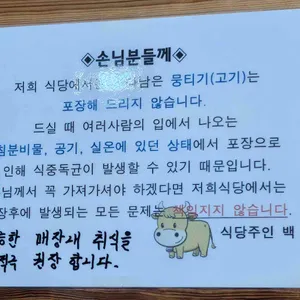 ◈손님분들께◈
저희 식당에서 남은 뭉티기(고기)는
포장해 드리지 않습니다.
드실 때 여러사람의 입에서 나오는
침분비물, 공기, 실온에 있던 상태에서 포장으로
인해 식중독균이 발생할 수 있기 때문입니다.
님께서 꼭 가져가셔야 하겠다면 저희식당에서는
장후에 발생되는 모든 문제는 책임지지 않습니다.
식당주인 백
매장내 취식을
권장 합니다.